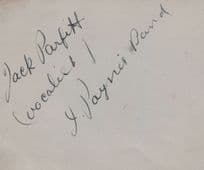 Jack Parfitt
(vocalist)
J Payne's Band